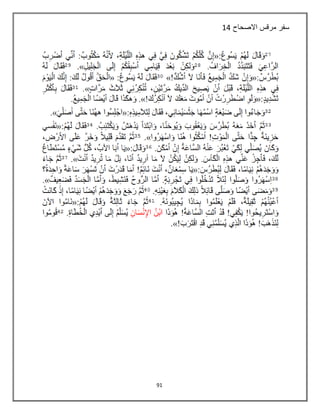 سفر مرقس الاصحاح 14
27وَقَالَ لَهُمْ يَسُوعُ:«إِنَّ كُلَّكُمْ تَشُكُّونَ فِيَّ فِي هذِهِ اللَّيْلَةِ، لأَنَّهُ مَكْتُوبٌ: أَنِّي أَضْرِبُ
الرَّاعِيَ فَتَتَبَدَّدُ الْخِرَافُ. 28وَلكِنْ بَعْدَ قِيَامِي أَسْبِقُكُمْ إِلَى الْجَلِيلِ». 29فَقَالَ لَهُ
بُطْرُسُ:«وَإِنْ شَكَّ الْجَمِيعُ فَأَنَا لاَ أَشُكُّ!» 30فَقَالَ لَهُ يَسُوعُ: «الْحَقَّ أَقُولُ لَكَ: إِنَّكَ الْيَوْمَ
فِي هذِهِ اللَّيْلَةِ، قَبْلَ أَنْ يَصِيحَ الدِّيكُ مَرَّتَيْنِ، تُنْكِرُنِي ثَلاَثَ مَرَّاتٍ». 31فَقَالَ بِأَكْثَرِ
تَشْدِيدٍ:«وَلَوِ اضْطُرِرْتُ أَنْ أَمُوتَ مَعَكَ لاَ أُنْكِرُكَ!». وَهكَذَا قَالَ أَيْضًا الْجَمِيعُ.
32وَجَاءُوا إِلَى ضَيْعَةٍ اسْمُهَا جَثْسَيْمَانِي، فَقَالَ لِتَلاَمِيذِهِ:«اجْلِسُوا ههُنَا حَتَّى أُصَلِّيَ».
33ثُمَّ أَخَذَ مَعَهُ بُطْرُسَ وَيَعْقُوبَ وَيُوحَنَّا، وَابْتَدَأَ يَدْهَشُ وَيَكْتَئِبُ. 34فَقَالَ لَهُمْ:«نَفْسِي
حَزِينَةٌ جِدًّا حَتَّى الْمَوْتِ! اُمْكُثُوا هُنَا وَاسْهَرُوا». 35ثُمَّ تَقَدَّمَ قَلِيلاً وَخَرَّ عَلَى الأَرْضِ،
وَكَانَ يُصَلِّي لِكَيْ تَعْبُرَ عَنْهُ السَّاعَةُ إِنْ أَمْكَنَ. 36وَقَالَ:«يَا أَبَا الآبُ، كُلُّ شَيْءٍ مُسْتَطَاعٌ
لَكَ، فَأَجِزْ عَنِّي هذِهِ الْكَأْسَ. وَلكِنْ لِيَكُنْ لاَ مَا أُرِيدُ أَنَا، بَلْ مَا تُرِيدُ أَنْتَ». 37ثُمَّ جَاءَ
وَوَجَدَهُمْ نِيَامًا، فَقَالَ لِبُطْرُسَ:«يَا سِمْعَانُ، أَنْتَ نَائِمٌ! أَمَا قَدَرْتَ أَنْ تَسْهَرَ سَاعَةً وَاحِدَةً؟
38اِسْهَرُوا وَصَلُّوا لِئَلاَّ تَدْخُلُوا فِي تَجْرِبَةٍ. أَمَّا الرُّوحُ فَنَشِيطٌ، وَأَمَّا الْجَسَدُ فَضَعِيفٌ».
39وَمَضَى أَيْضًا وَصَلَّى قَائِلاً ذلِكَ الْكَلاَمَ بِعَيْنِهِ. 40ثُمَّ رَجَعَ وَوَجَدَهُمْ أَيْضًا نِيَامًا، إِذْ كَانَتْ
أَعْيُنُهُمْ ثَقِيلَةً، فَلَمْ يَعْلَمُوا بِمَاذَا يُجِيبُونَهُ. 41ثُمَّ جَاءَ ثَالِثَةً وَقَالَ لَهُمْ:«نَامُوا الآنَ
وَاسْتَرِيحُوا! يَكْفِي! قَدْ أَتَتِ السَّاعَةُ! هُوَذَا ابْنُ الإِنْسَانِ يُسَلَّمُ إِلَى أَيْدِي الْخُطَاةِ. 42قُومُوا
لِنَذْهَبَ! هُوَذَا الَّذِي يُسَلِّمُنِي قَدِ اقْتَرَبَ!».
91